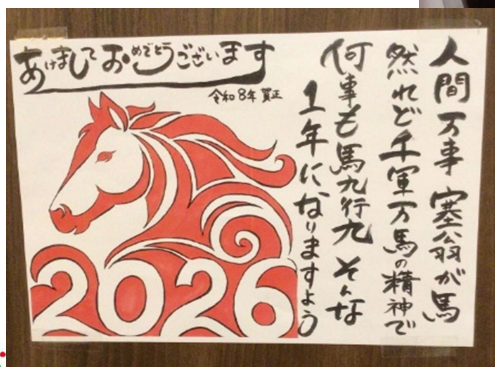 あけましておめでとうございます
令和8年 賀正
人間万事 塞翁が馬
然れど千軍万馬の精神で
何事も馬九行九 そんな
1年になりますよう
2026